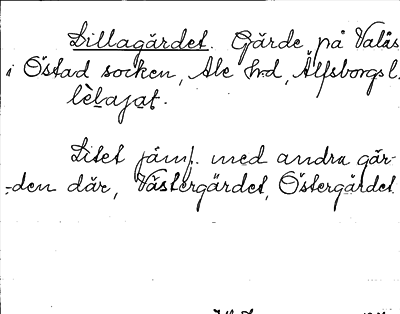 Lillagärdet. Gärde på Valås
i Östad socken, Ale hrd, Älfsborgs l.
lèlajat.
Litet jämf. med andra går-
den där, Västergärdet, Östergärdet